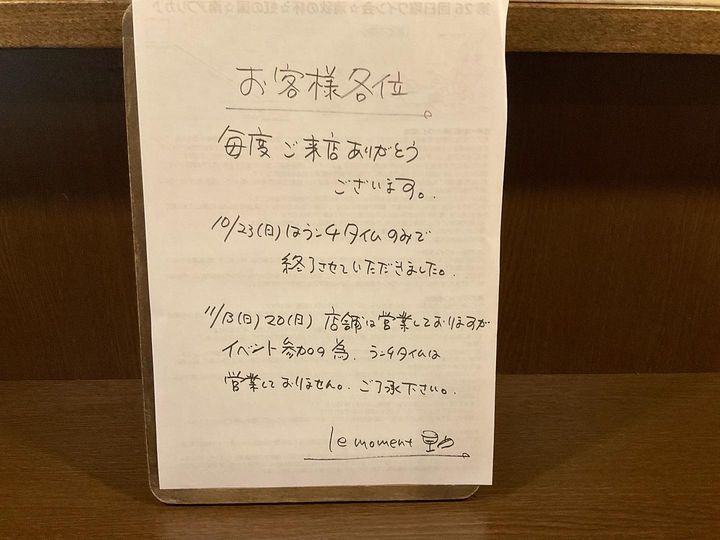 お客様各位。
毎度ご来店ありがとう
ございます。
10/23(日)はランチタイムのみで
終了させていただきました。
11/13(日)20(日)店舗は営業しておりますが
イベント参加の為、ランチタイムは
営業しておりません。ご了承下さい。
le moment